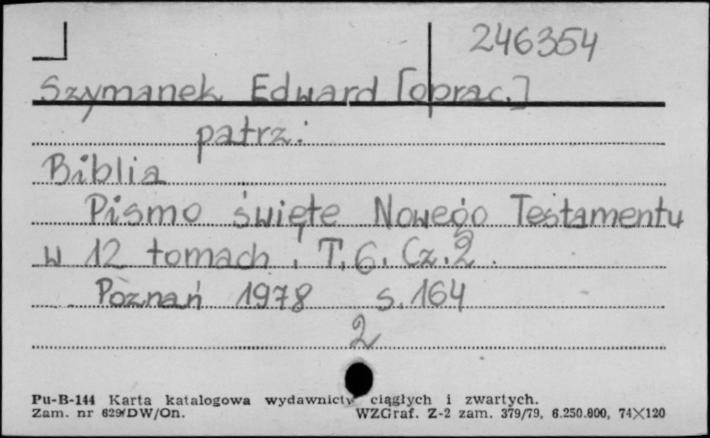 246354
Szymanek Edward [oprac.]
patrz:
Biblia
Pismo święte Nowego Testamentu
w 12 tomach. T.6. Cz.2.
Poznań 1978 s.164
2
Pu-B-144 Karta katalogowa wydawnictw ciągłych i zwartych.
Zam. nr 629/DW/On. WZGraf. Z-2 zam. 379/79, 6.250.000, 74×120